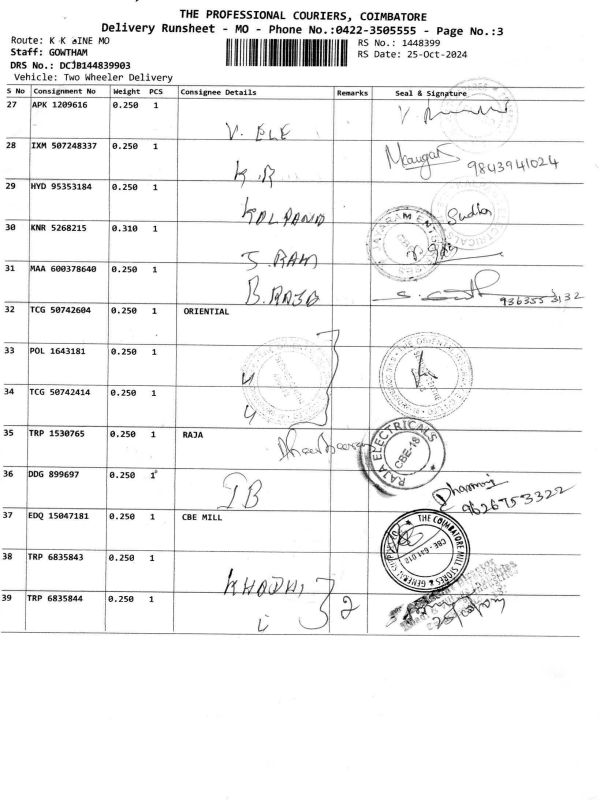 THE PROFESSIONAL COURIERS, COIMBATORE
Delivery Runsheet - MO - Phone No.:0422-3505555 - Page No.:3
Route: K K INE MO
RS No.: 1448399
Staff: GOWTHAM
RS Date: 25-Oct-2024
DRS No.: DCJB144839903
Vehicle: Two Wheeler Delivery
S No Consignment No Weight PCS Consignee Details Remarks Seal & Signature
27 APK 1209616 0.250 1
V. ELE
28 IXM 507248337 0.250 1
K.R
9843941024
29 HYD 95353184 0.250 1
KALPANA Sudha
30 KNR 5268215 0.310 1
S.RAM
31 MAA 600378640 0.250 1
B.RAJA
9363553132
32 TCG 50742604 0.250 1 ORIENTIAL
33 POL 1643181 0.250 1
34 TCG 50742414 0.250 1
35 TRP 1530765 0.250 1 RAJA
RAJA ELECTRICALS
CBE-18
36 DDG 899697 0.250 1
IB
9626753322
37 EDQ 15047181 0.250 1 CBE MILL
THE COIMBATORE MILL STORES & GENERAL SUPPLY CO
CBE - 641 012
38 TRP 6835843 0.250 1
KHADHI
39 TRP 6835844 0.250 1
2